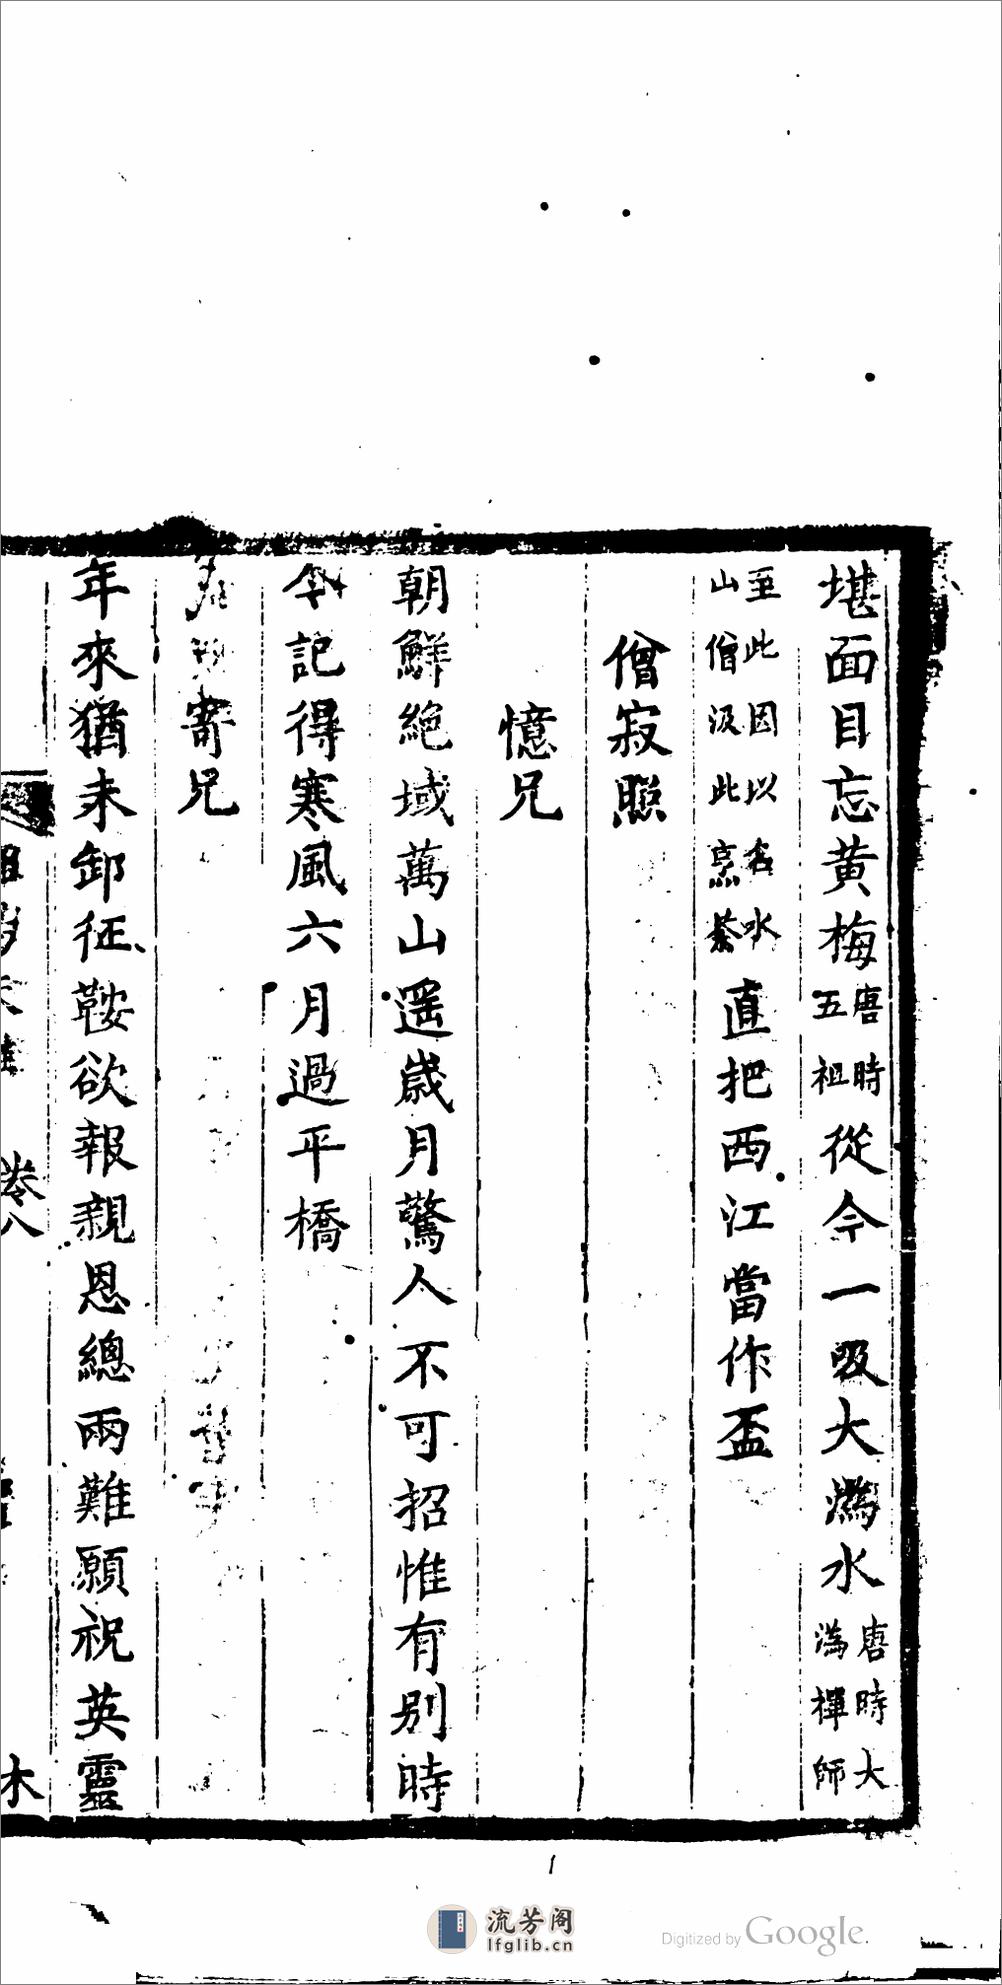 堪面目忘黄梅唐時五祖從今一吸大潙水唐時大潙禪師
至此因以名水山僧汲此烹茶直把西江當作盃
僧寂照
憶兄
朝鮮絕域萬山遥歲月驚人不可招惟有别時
今記得寒風六月過平橋
寄兄
年來猶未卸征鞍欲報親恩總兩難願祝英靈
卷八
木
流芳阁
lfglib.cn
Digitized by Google